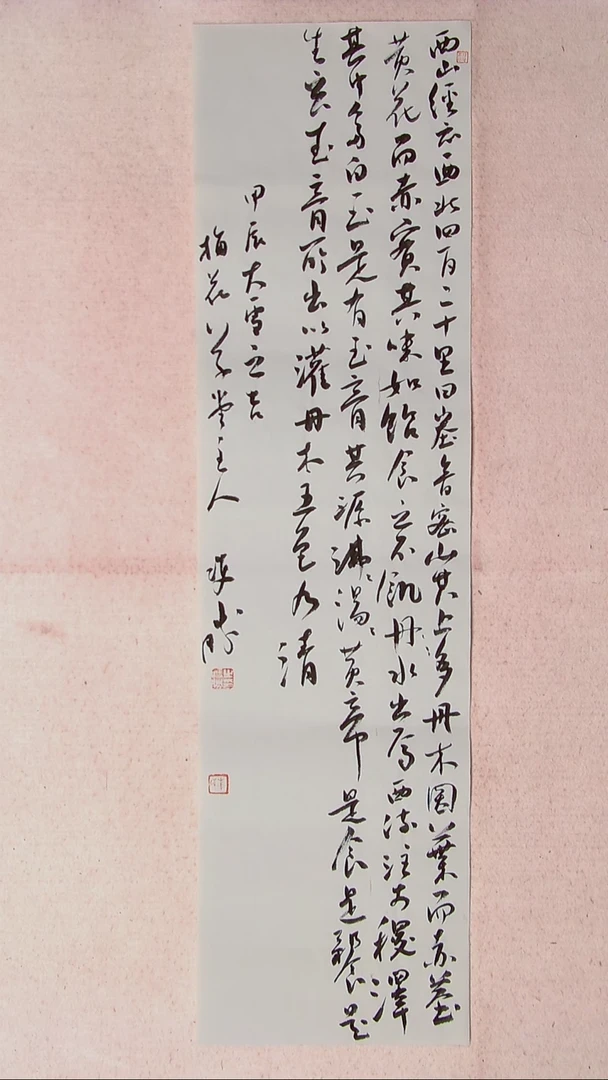 西山經云西北四百二十里曰峚音密山其上多丹木圓葉而赤莖
黃花而赤實其味如飴食之不飢丹水出焉西流注于稷澤
其中多白玉是有玉膏其源沸〻湯〻黃帝是食是饗是
生玄玉膏所出以灌丹木五色乃清
甲辰大雪之吉
梅花草堂主人